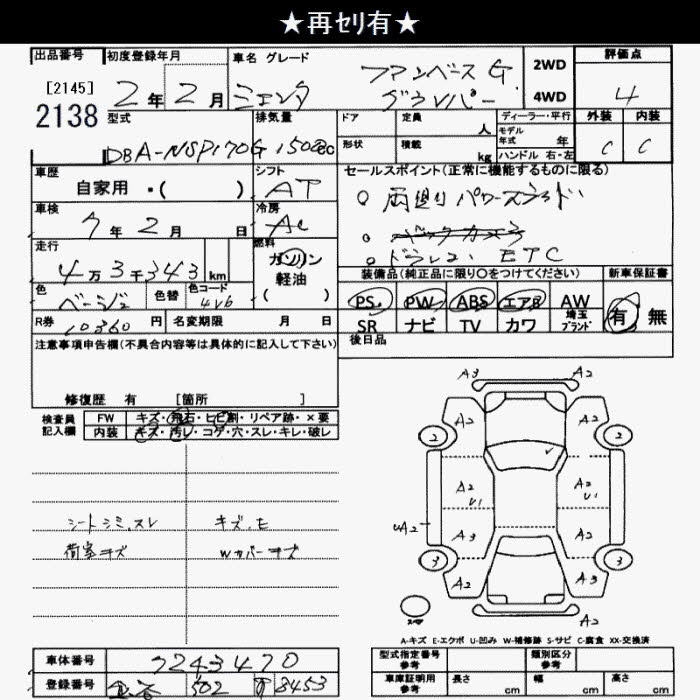 ★再セリ有★
出品番号 初度登録年月 車名 グレード 評価点
[2145]
2138
2年2月 シエンタ ファンベースG グランパー 2WD 4WD 4
型式 排気量 ドア 定員 人 ディーラー・平行 外装 内装
DBA-NSP170G 1500cc 形状 積載 kg モデル年式 年 ハンドル 右・左 C C
車歴 シフト セールスポイント(正常に機能するものに限る)
自家用・( ) AT 両側パワースライド
車検 冷房
7年2月 日 AC バックカメラ
走行 燃料 ドラレコ ETC
4万3千343km ガソリン 軽油 ( )
装備品(純正品に限り○をつけてください) 新車保証書
色 色替 色コード
ベージュ 4V6
PS PW ABS エアB AW 有 無
R券 10360円 名変期限 月 日
SR ナビ TV カワ 埼玉ブランド
注意事項申告欄(不具合内容等は具体的に記入して下さい)
後日品
修復歴 有 [箇所 ]
検査員記入欄
FW キズ・飛石・ヒビ割・リペア跡・×要
内装 キズ・汚レ・コゲ・穴・スレ・キレ・破レ
シートシミ、スレ キズ、E
荷室キズ Wカバーキズ
A3 A2
A2 A2
2 2
A2 U1 A2 U1
UA2 A3 A2
3 3
A2 A3
A2
A-キズ E-エクボ U-凹み W-補修跡 S-サビ C-腐食 XX-交換済
車体番号 7243470
登録番号 502 8453
型式指定番号参考 類別区分参考
車庫証明用参考 長さ cm 幅 cm 高さ cm